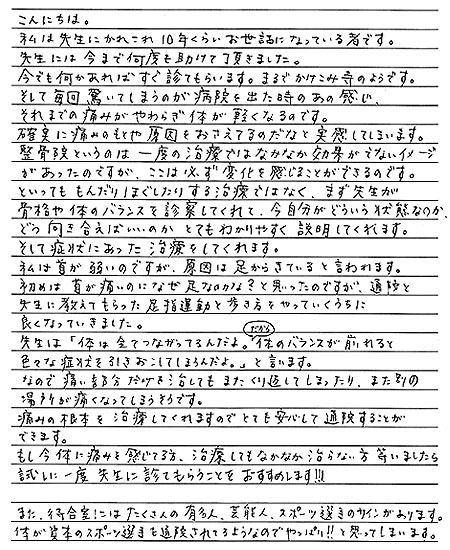 こんにちは。
私は先生にかれこれ10年くらいお世話になっている者です。
先生には今まで何度も助けて頂きました。
今でも何かあればすぐ診てもらいます。まるでかけこみ寺のようです。
そして毎回驚いてしまうのが病院を出た時のあの感じ、
それまでの痛みがやわらぎ体が軽くなるのです。
確実に痛みのもとや原因をおさえてるのだなと実感してしまいます。
整骨院というのは一度の治療ではなかなか効果がでないイメージ
があったのですが、ここは必ず変化を感じることができるのです。
といってももんだりほぐしたりする治療ではなく、まず先生が
骨格や体のバランスを診察してくれて、今自分がどういう状態なのか、
どう向き合えばいいのかとてもわかりやすく説明してくれます。
そして症状にあった治療をしてくれます。
私は首が弱いのですが、原因は足からきていると言われます。
初めは首が痛いのになぜ足なのかな?と思ったのですが、通院と
先生に教えてもらった足指運動と歩き方をやっていくうちに
良くなっていきました。
先生は「体は全てつながってるんだよ。だから体のバランスが崩れると
色々な症状を引きおこしてしまうんだよ。」と言います。
なので痛い部分だけを治してもまたくり返してしまったり、また別の
場所が痛くなってしまうそうです。
痛みの根本を治療してくれますのでとても安心して通院することが
できます。
もし今体に痛みを感じてる方、治療してもなかなか治らない方等いましたら
試しに一度先生に診てもらうことをおすすめします!!
また、待合室にはたくさんの有名人、芸能人、スポーツ選手のサインがあります。
体が資本のスポーツ選手も通院されてるようなのでやっぱり!!と思ってしまいます。